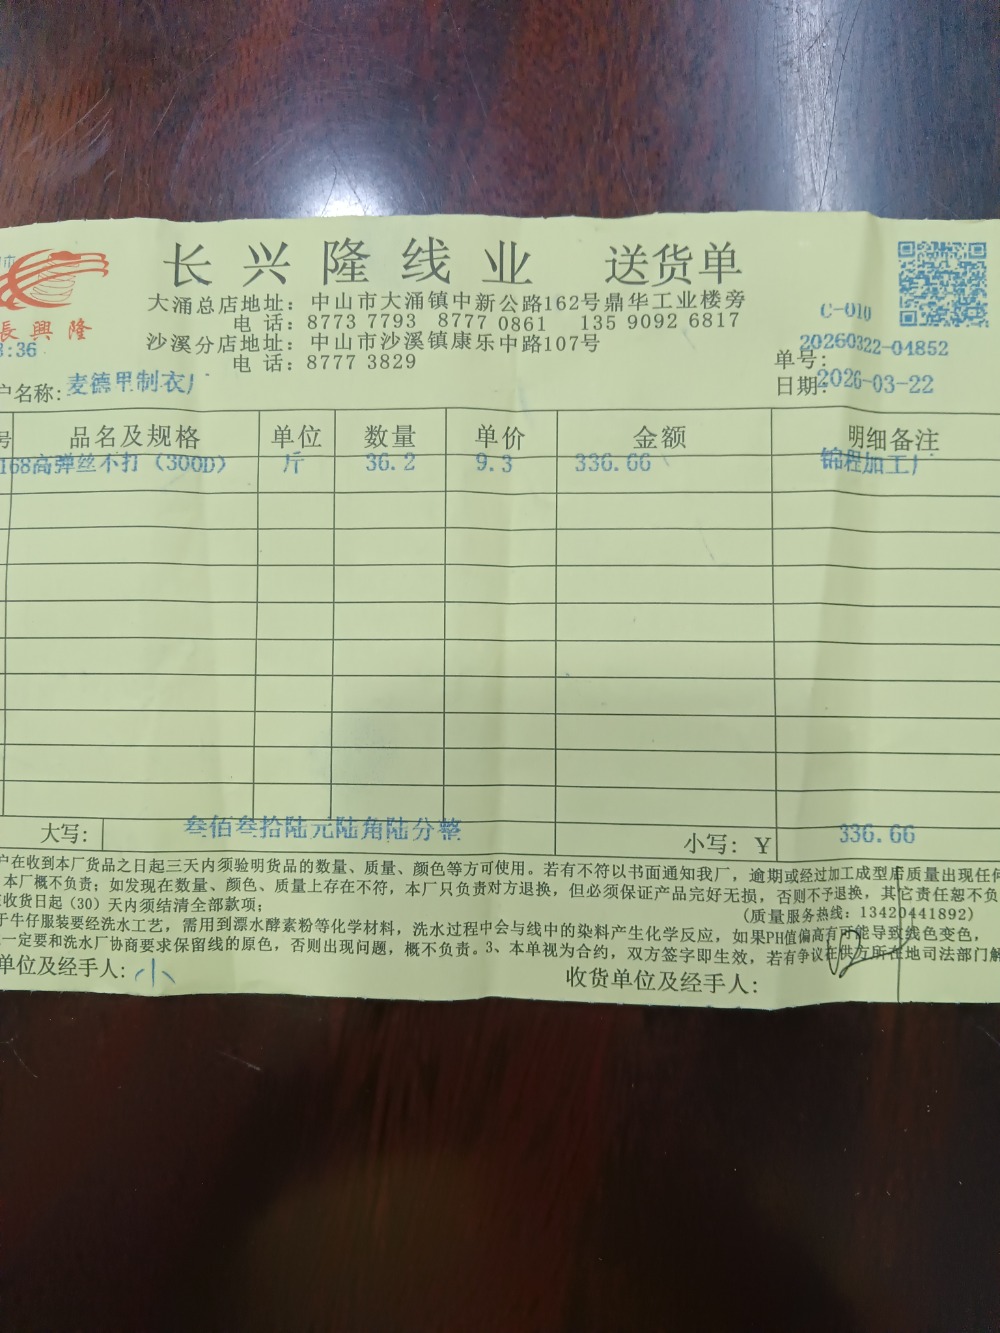 长兴隆线业 送货单
長興隆
大涌总店地址：中山市大涌镇中新公路162号鼎华工业楼旁
电 话：8773 7793 8777 0861 135 9092 6817
沙溪分店地址：中山市沙溪镇康乐中路107号
电 话：8777 3829
C-010
:36
单号：20260322-04852
户名称：麦德甲制衣厂
日期：2026-03-22
号 品名及规格 单位 数量 单价 金额 明细备注
168高弹丝不打（300D） 斤 36.2 9.3 336.66 锦程加工厂
大写： 叁佰叁拾陆元陆角陆分整 小写：￥ 336.66
户在收到本厂货品之日起三天内须验明货品的数量、质量、颜色等方可使用。若有不符以书面通知我厂，逾期或经过加工成型后质量出现任何
本厂概不负责；如发现在数量、颜色、质量上存在不符，本厂只负责对方退换，但必须保证产品完好无损，否则不予退换，其它责任恕不负
收货日起（30）天内须结清全部款项； （质量服务热线：13420441892）
于牛仔服装要经洗水工艺，需用到漂水酵素粉等化学材料，洗水过程中会与线中的染料产生化学反应，如果PH值偏高有可能导致线色变色，
一定要和洗水厂协商要求保留线的原色，否则出现问题，概不负责。3、本单视为合约，双方签字即生效，若有争议在供方所在地司法部门解
单位及经手人：小 收货单位及经手人：